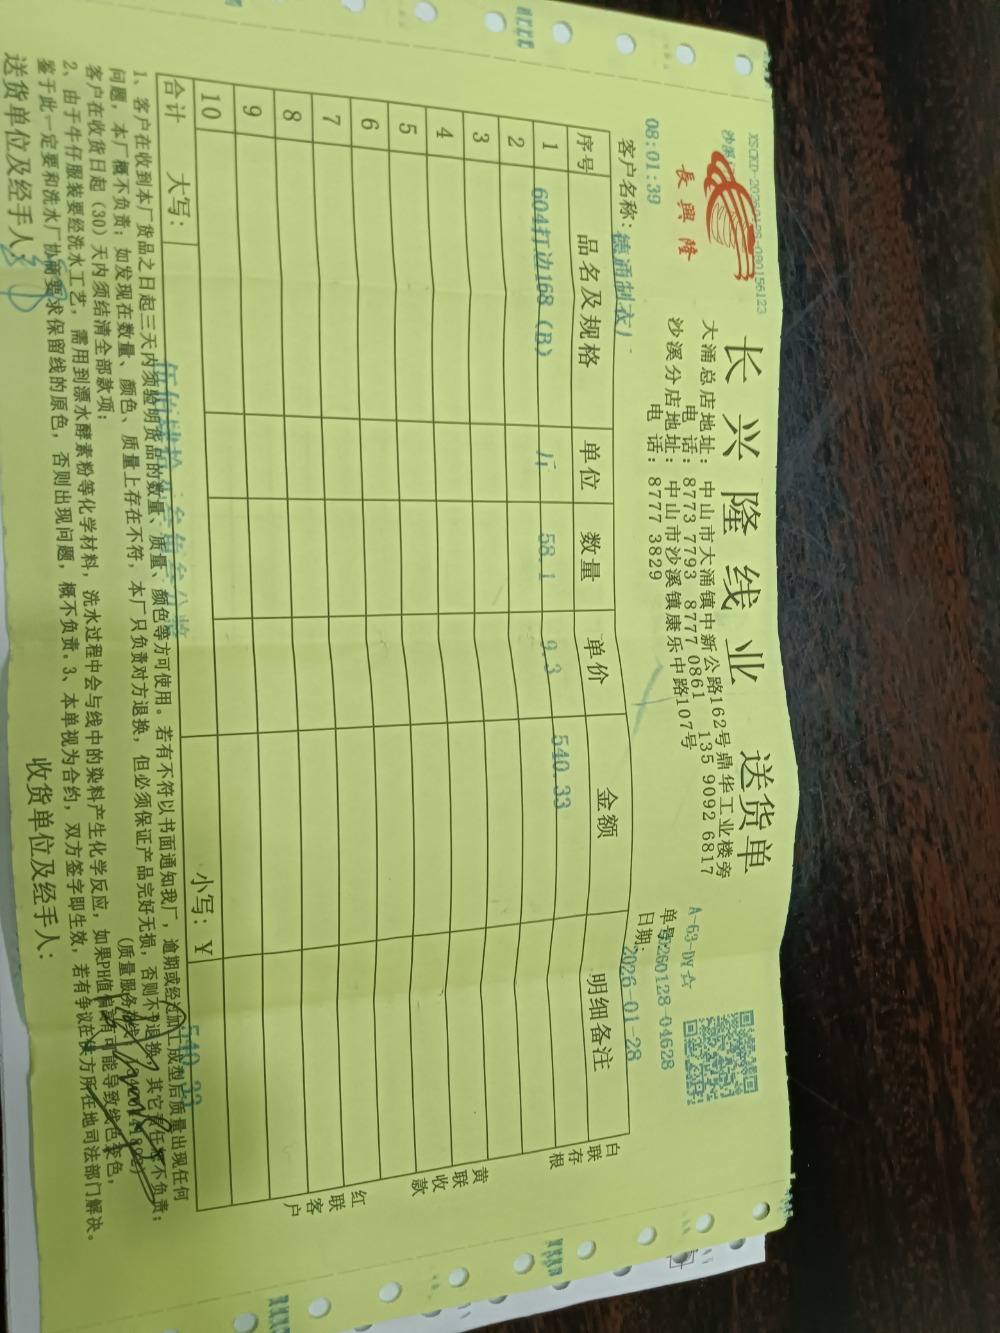 長興隆
长兴隆线业 送货单
大涌总店地址：中山市大涌镇中新公路162号鼎华工业楼旁
电话：8773 7793 8777 0861 135 9092 6817
沙溪分店地址：中山市沙溪镇康乐中路107号
电话：8777 3829
A-63-DY☆
单号 20260128-04628
日期：2026-01-28
08:01:39
客户名称：德通制衣厂
序号 品名及规格 单位 数量 单价 金额 明细备注
1 604打边168（B） 斤 58.1 9.3 540.33
2
3
4
5
6
7
8
9
10
合计 大写：伍佰肆拾 叁角叁分 小写：￥ 540.33
白联存根
黄联收款
红联客户
1、客户在收到本厂货品之日起三天内须验明货品的数量、质量、颜色等方可使用。若有不符以书面通知我厂，逾期或经过加工成型后质量出现任何
问题，本厂概不负责；如发现在数量、颜色、质量上存在不符，本厂只负责对方退换，但必须保证产品完好无损，否则不予退换，其它责任概不负责；
客户在收货日起（30）天内须结清全部款项； （质量服务
2、由于牛仔服装要经洗水工艺，需用到漂水酵素粉等化学材料，洗水过程中会与线中的染料产生化学反应，如果PH值偏高有可能导致线色变色，
鉴于此一定要和洗水厂协商要求保留线的原色，否则出现问题，概不负责。3、本单视为合约，双方签字即生效，若有争议在供方所在地司法部门解决。
送货单位及经手人： 收货单位及经手人：